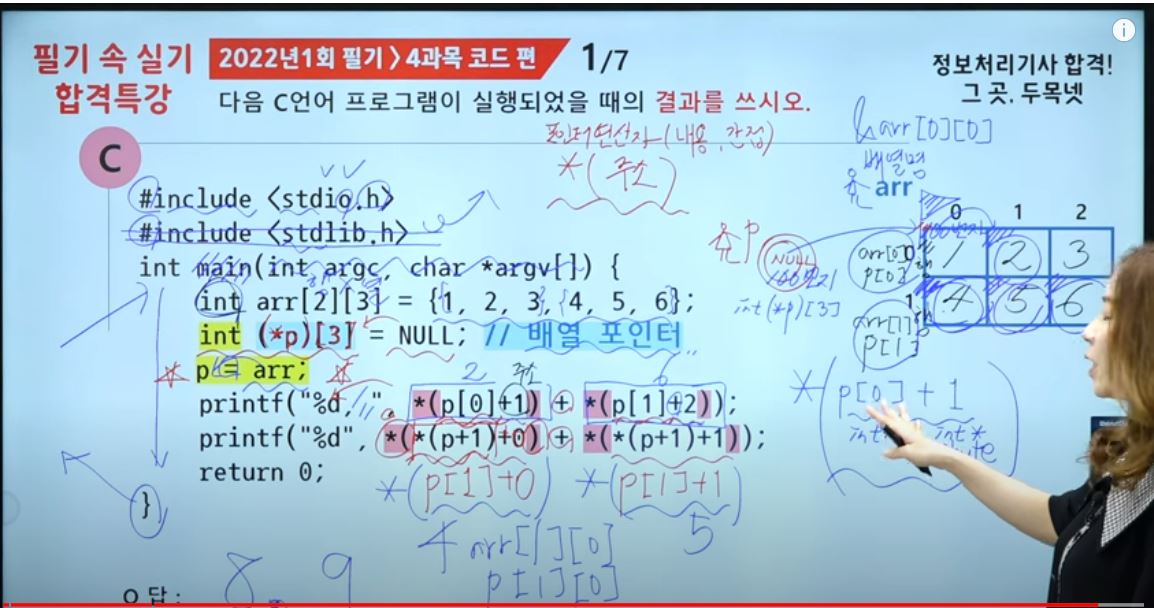 필기 속 실기
합격특강
2022년1회 필기 > 4과목 코드 편
1/7
다음 C언어 프로그램이 실행되었을 때의 결과를 쓰시오.
정보처리기사 합격!
그 곳. 두목넷
포인터연산자 (내용, 간접)
*(주소)
&arr[0][0]
배열명
arr
C
#include <stdio.h>
#include <stdlib.h>
int main(int argc, char *argv[]) {
int arr[2][3] = {1, 2, 3, 4, 5, 6};
int (*p)[3] = NULL; // 배열 포인터
p = arr;
2 주소 6
printf("%d, ", *(p[0]+1) + *(p[1]+2));
printf("%d", *(*(p+1)+0) + *(*(p+1)+1));
return 0;
}
*(p[1]+0) *(p[1]+1)
4 arr[1][0] 5
p[1][0]
8 9
답 :
p
NULL
100번지
int(*p)[3]
0 1 2
arr[0]
p[0]
1 2 3
1
arr[1]
p[1]
4 5 6
*(p[0] + 1
int* int*